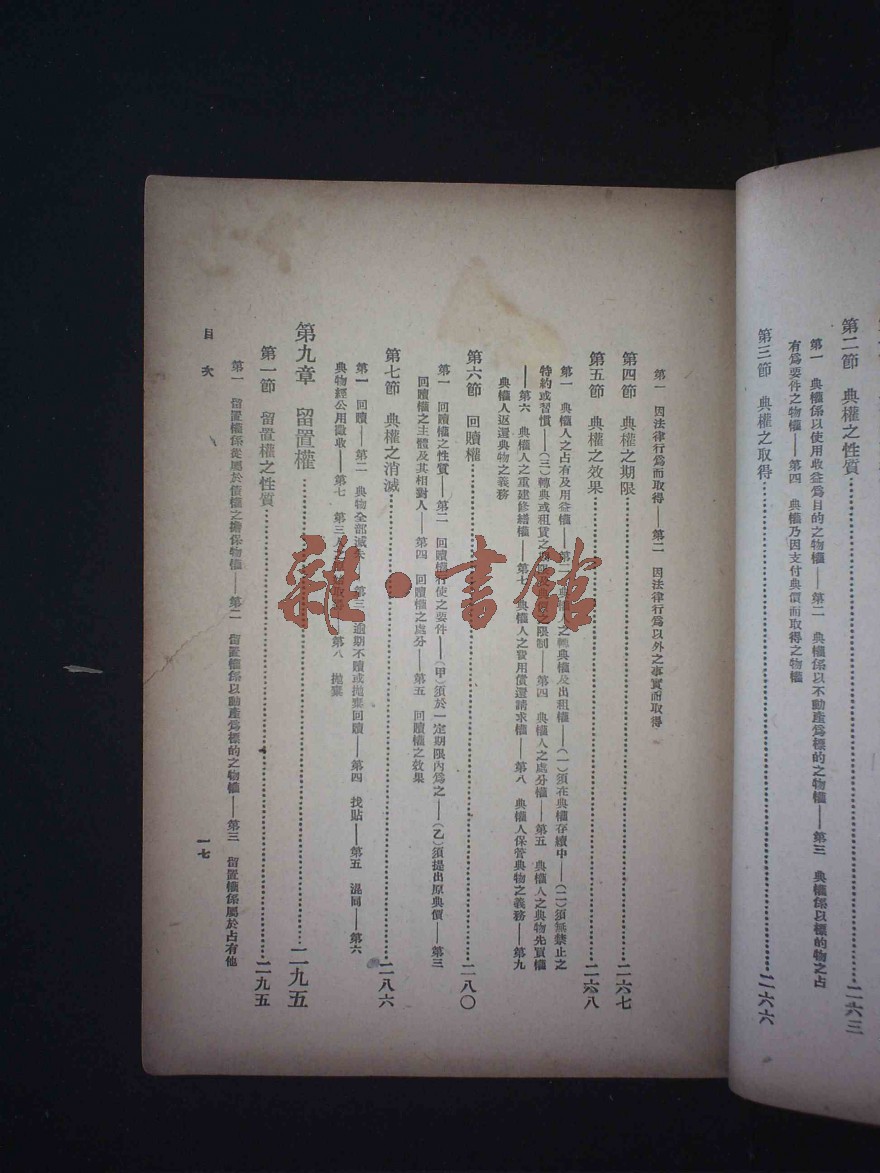 第二節　典權之性質…………二六三
第一　典權係以使用收益爲目的之物權——第二　典權係以不動產爲標的之物權——第三　典權係以標的物之占
有爲要件之物權——第四　典權乃因支付典價而取得之物權
第三節　典權之取得…………二六六
第一　因法律行爲而取得——第二　因法律行爲以外之事實而取得
第四節　典權之期限…………二六七
第五節　典權之效果…………二六八
第一　典權人之占有及用益權——第二　典權人之轉典權及出租權——(一)須在典權存續中——(二)須無禁止之
特約或習慣——(三)轉典或租賃之限制——第四　典權人之處分權——第五　典權人之典物先買權
——第六　典權人之重建修繕權——第七　典權人之費用償還請求權——第八　典權人保管典物之義務——第九
典權人返還典物之義務
第六節　回贖權…………二八〇
第一　回贖權之性質——第二　回贖權行使之要件——(甲)須於一定期限內爲之——(乙)須提出原典價——第三
回贖權之主體及其相對人——第四　回贖權之處分——第五　回贖權之效果
第七節　典權之消滅…………二八六
第一　回贖——第二　典物全部滅失——第三　逾期不贖或拋棄回贖——第四　找貼——第五　混同——第六
典物經公用徵收——第七　第三人之　取　——第八　拋棄
第九章　留置權…………二九五
第一節　留置權之性質…………二九五
第一　留置權係從屬於債權之擔保物權——第二　留置權係以動產爲標的之物權——第三　留置權係屬於占有他
目次
一七
雜·書館